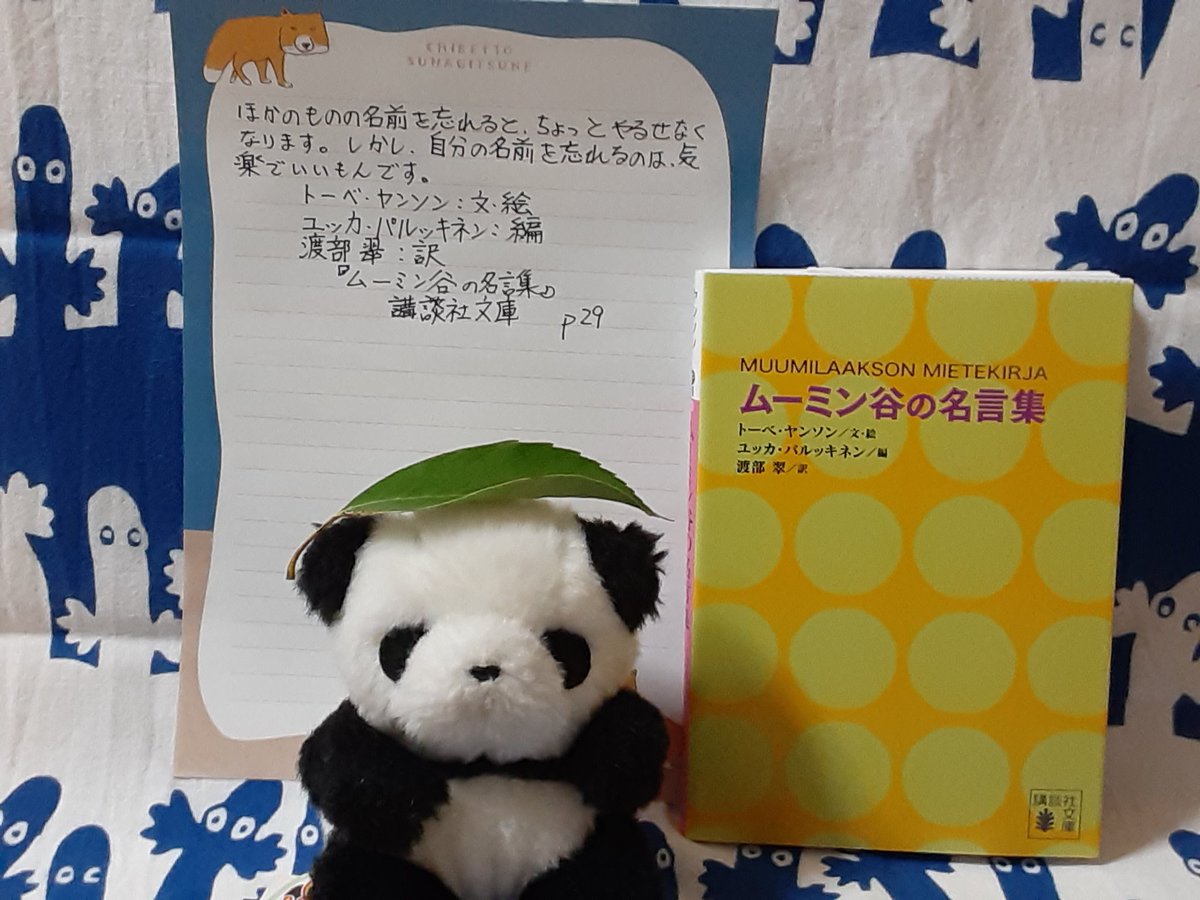 CHIBETTO
SUNAGITSUNE
ほかのものの名前を忘れると、ちょっとやるせなく
なります。しかし、自分の名前を忘れるのは、気
楽でいいもんです。
トーベ・ヤンソン：文・絵
ユッカ・パルッキネン：編
渡部翠：訳
『ムーミン谷の名言集』
講談社文庫 p29
MUUMILAAKSON MIETEKIRJA
ムーミン谷の名言集
トーベ・ヤンソン／文・絵
ユッカ・パルッキネン／編
渡部 翠／訳
講談社
文庫